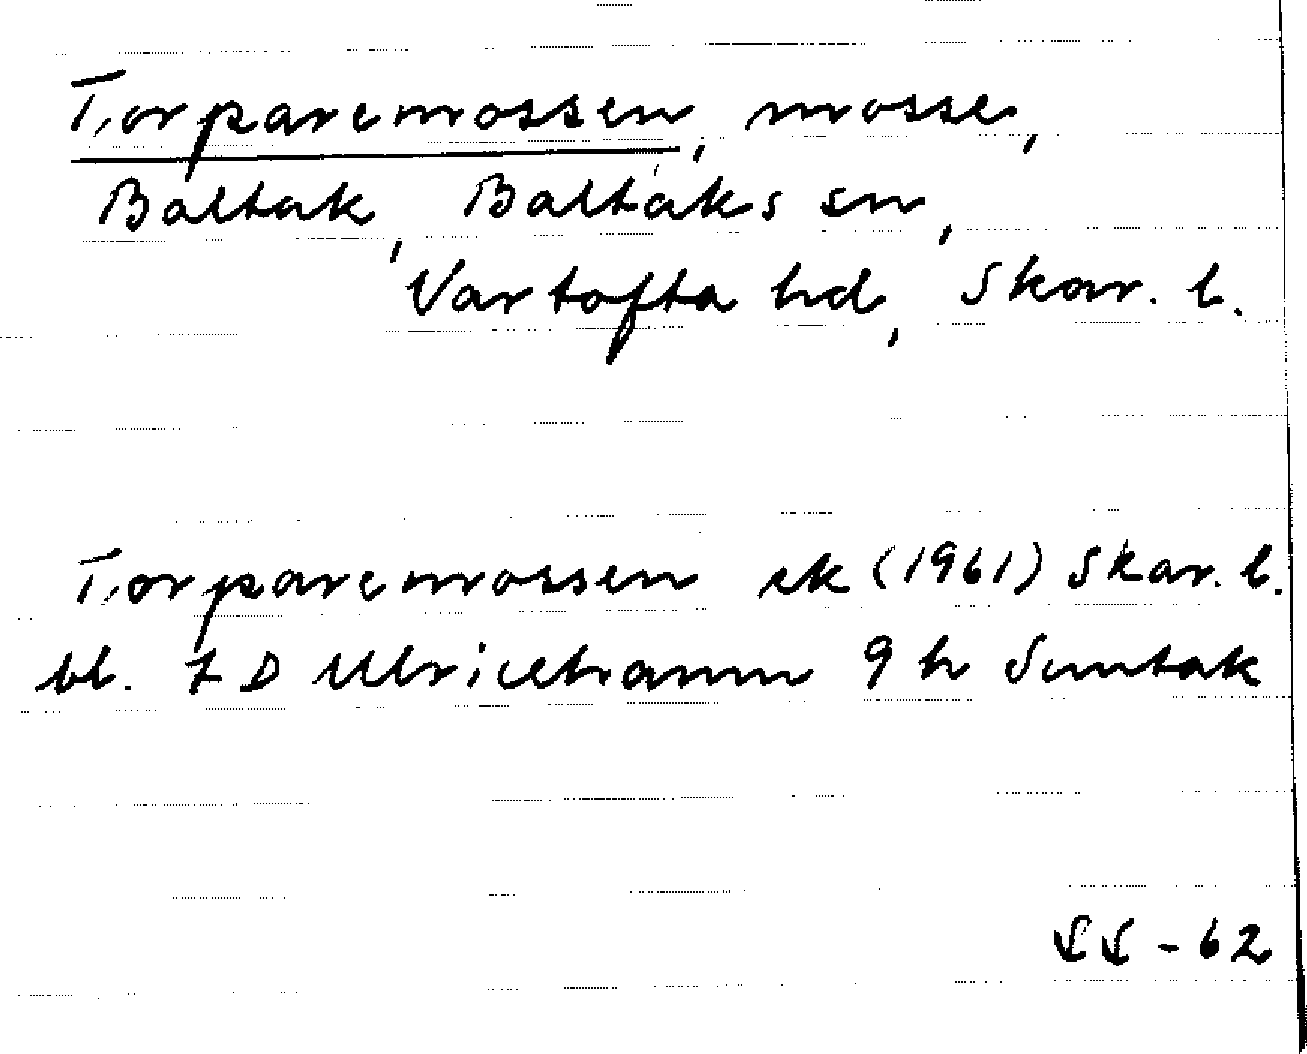 Torparemossen, mosse,
Baltak, Baltaks sn,
Vartofta hd, Skar. l.
Torparemossen ek (1961) Skar. l.
bl. 7 D Ulricehamn 9 h Suntak
SS - 62